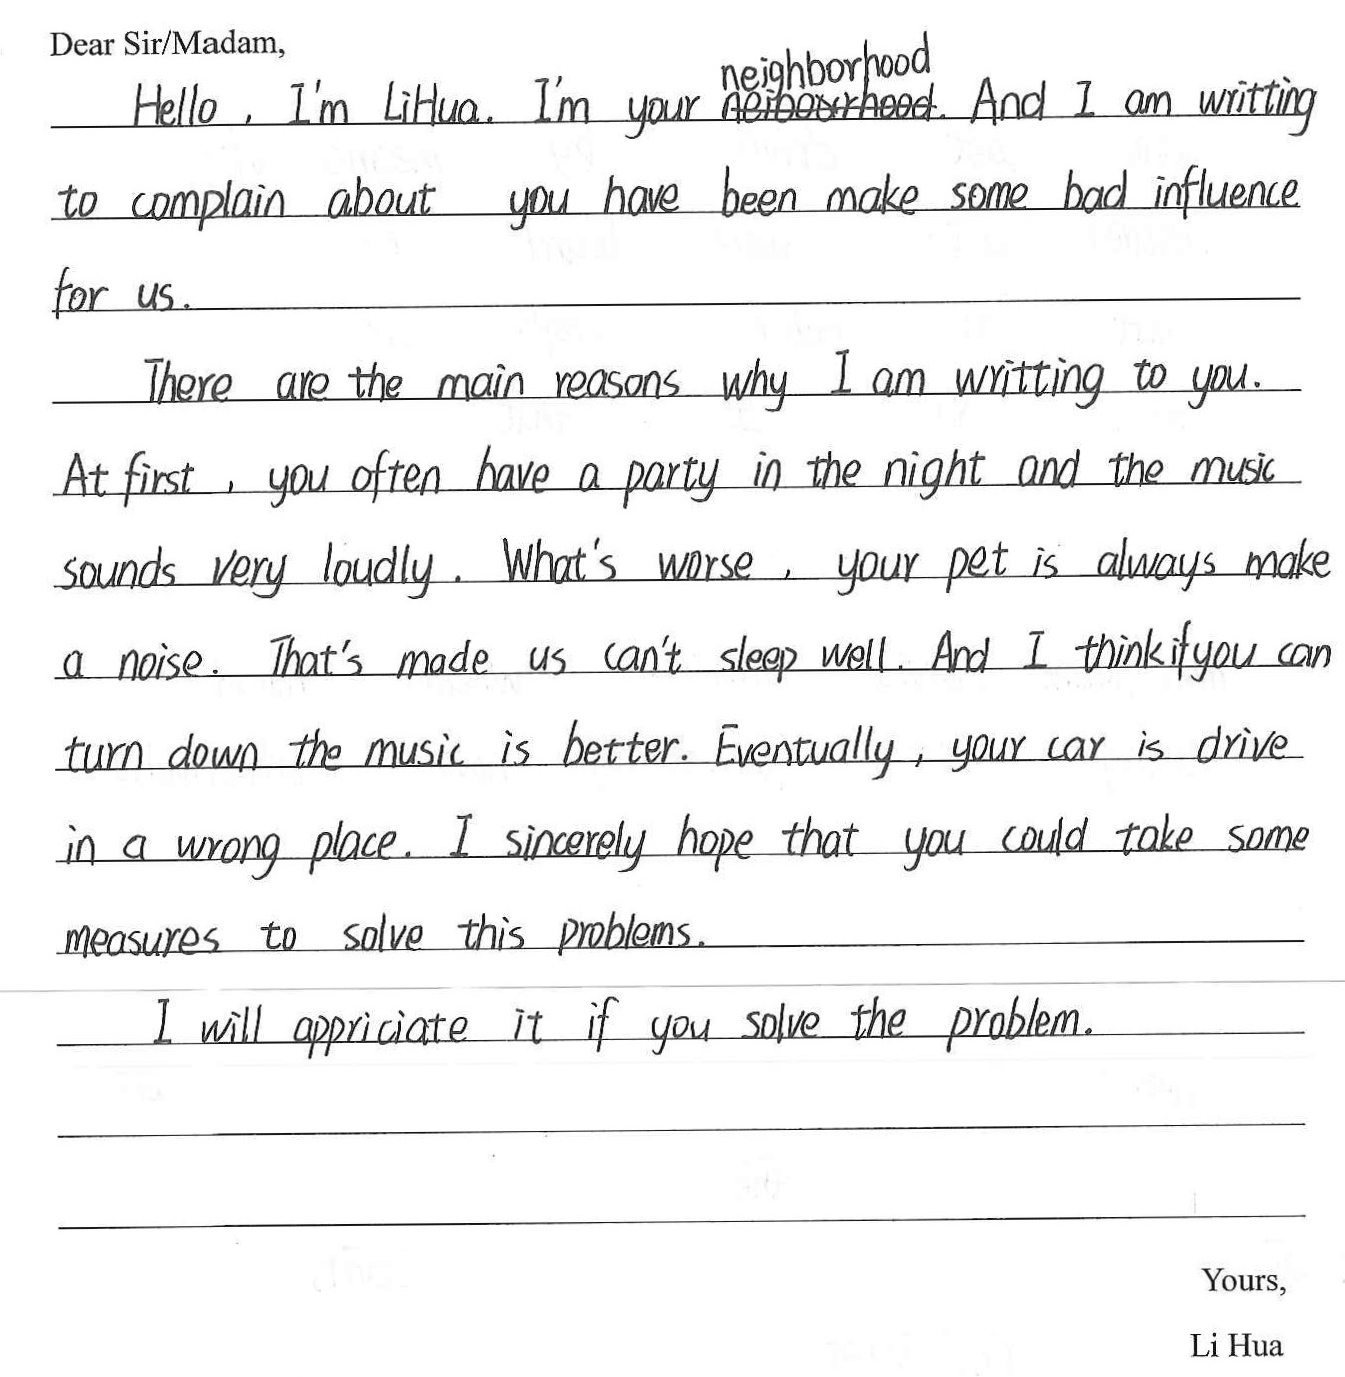 Dear Sir/Madam,
neighborhood
Hello, I'm LiHua. I'm your neibourhood. And I am writting
to complain about you have been make some bad influence
for us.
There are the main reasons why I am writting to you.
At first, you often have a party in the night and the music
sounds very loudly. What's worse, your pet is always make
a noise. That's made us can't sleep well. And I think if you can
turn down the music is better. Eventually, your car is drive
in a wrong place. I sincerely hope that you could take some
measures to solve this problems.
I will appriciate it if you solve the problem.
Yours,
Li Hua